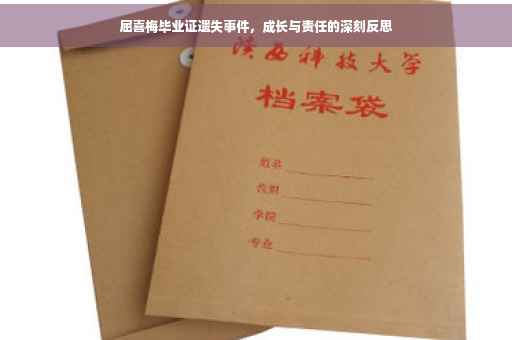 屈喜梅毕业证遗失事件，成长与责任的深刻反思
陕西科技大学
档案袋
姓名
学院
专业